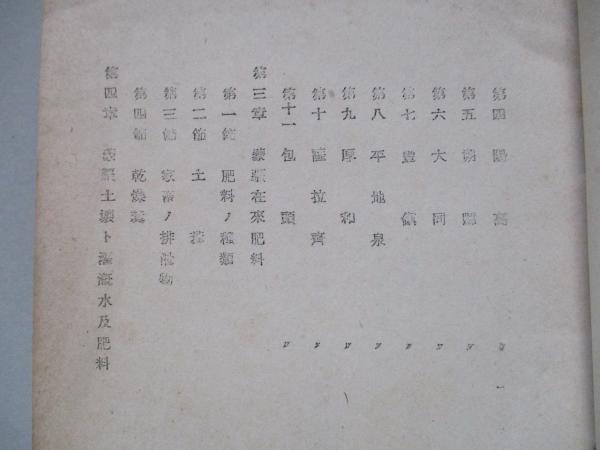 第四 陽高 〃 一
第五 〃
第六 大同 〃
第七 豊鎮 〃
第八 平地泉 〃
第九 厚和 〃
第十 薩拉齊 〃
第十一 包頭 〃
第三章 蒙疆在來肥料
第一節 肥料ノ種類
第二節 土糞
第三節 家畜ノ排泄物
第四節 乾燥糞
第四章 蒙疆土壤ト灌漑水及肥料